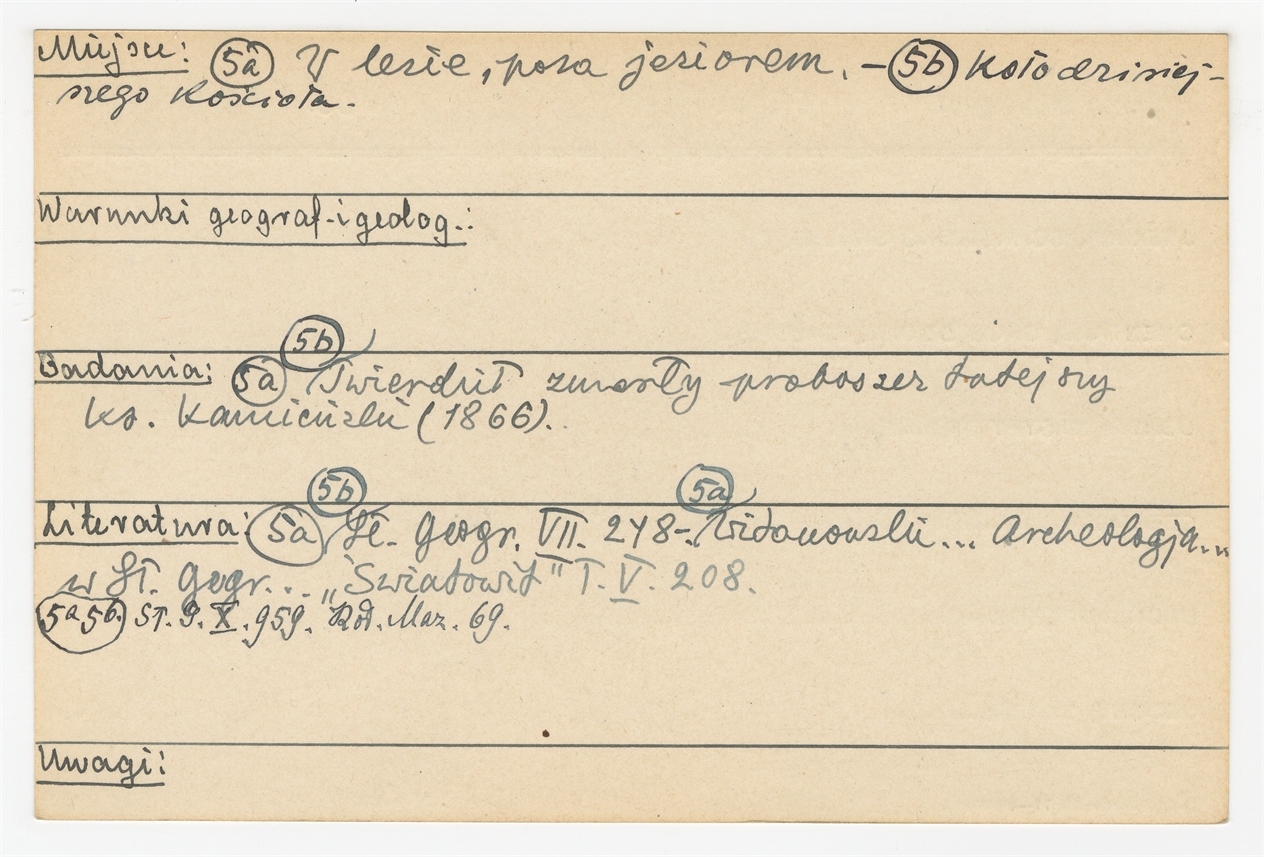 Miejsce: 5a W lesie, poza jeziorem. – 5b koło dzisiej-
szego kościoła.
Warunki geograf. i geolog.:
5b
Badania: 5a Twierdził zmarły proboszcz tutejszy
ks. Kamieński (1866).
5b 5a
Literatura: 5a Sł. Geogr. VII. 248-. Widanowski... Archeologja...
w Sł. Geogr... „Swiatowit" T. V. 208.
5a 5b. St. P. X. 959. Kod. Maz. 69.
Uwagi: